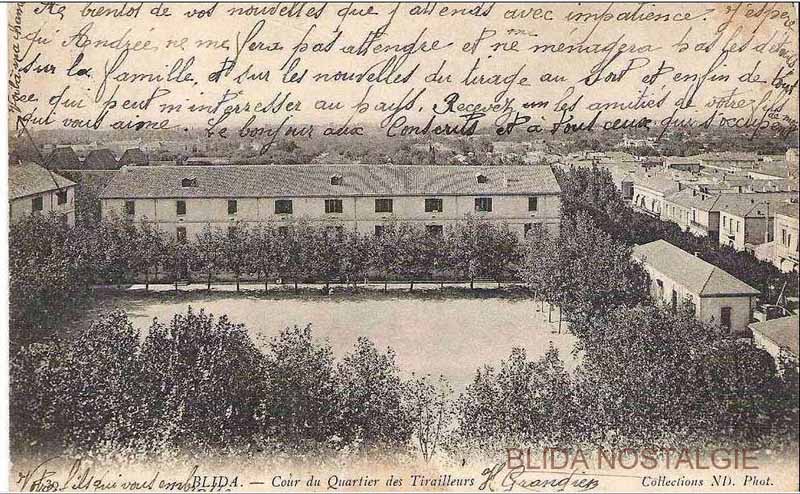 bientôt de vos nouvelles que j'attends avec impatience. J'espère
qu'Andrée ne me fera pas attendre et ne ménagera pas les détails
me
sur la famille, et sur les nouvelles du tirage au sort et enfin de tout
ce qui peut m'intérresser au pays. Recevez un les amitiés de votre fils
qui vous aime. Le bonjour aux Conscrits et à tous ceux qui s'occupent
de moi
Votre fils qui vous embrasse
H Grandjen
BLIDA. — Cour du Quartier des Tirailleurs
Collections ND. Phot.
BLIDA NOSTALGIE